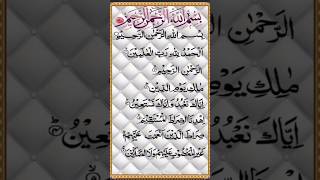 بِسْمِ اللّٰهِ الرَّحْمٰنِ الرَّحِيْمِ
بِسْمِ اللّٰهِ الرَّحْمٰنِ الرَّحِيْمِ
اَلْحَمْدُ لِلّٰهِ رَبِّ الْعٰلَمِيْنَ
الرَّحْمٰنِ الرَّحِيْمِ
مٰلِكِ يَوْمِ الدِّيْنِ
اِيَّاكَ نَعْبُدُ وَاِيَّاكَ نَسْتَعِيْنُ
اِهْدِنَا الصِّرَاطَ الْمُسْتَقِيْمَ
صِرَاطَ الَّذِيْنَ اَنْعَمْتَ عَلَيْهِمْ
غَيْرِ الْمَغْضُوْبِ عَلَيْهِمْ وَلَا الضَّآلِّيْنَ